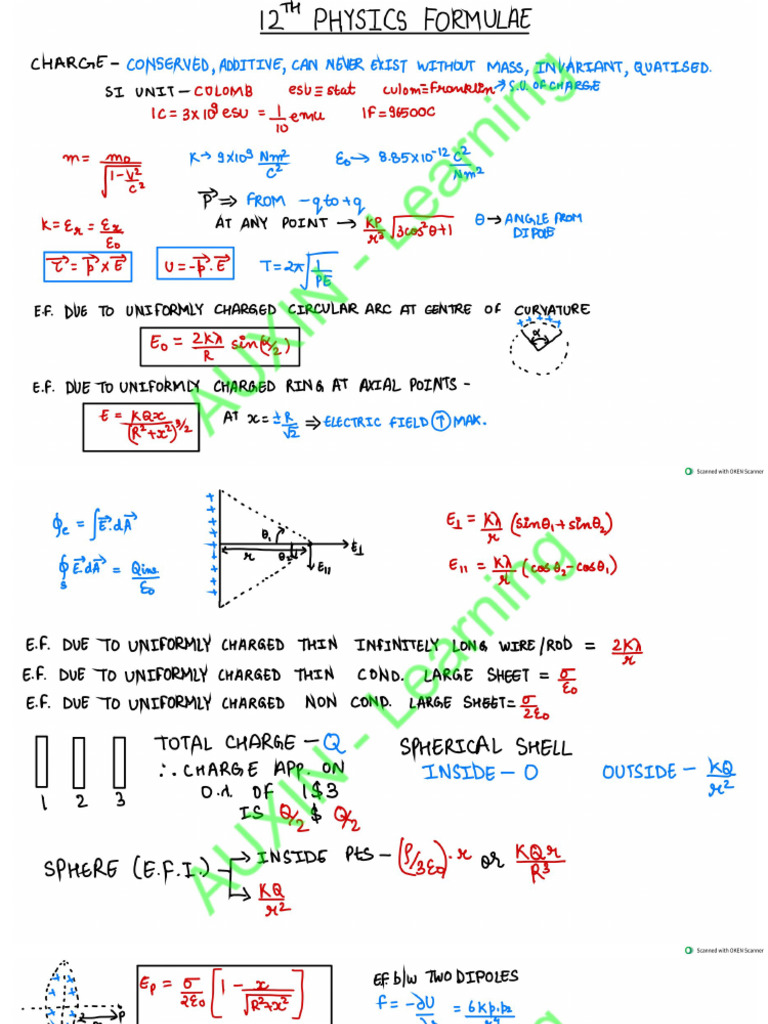 12TH PHYSICS FORMULAE
CHARGE - CONSERVED, ADDITIVE, CAN NEVER EXIST WITHOUT MASS, INVARIANT, QUATISED.
SI UNIT - COLOMB esu ≡ stat culom ≡ Franklin → S.U. OF CHARGE
1C = 3×10⁹ esu = 1/10 emu 1F = 96500C
m = m₀/√(1-V²/C²) K → 9×10⁹ Nm²/C² ε₀ → 8.85×10⁻¹² C²/Nm²
P⃗ ⇒ FROM -q to +q
K = εr = εr/ε₀ AT ANY POINT → KP/r³ √(3cos²θ+1) θ → ANGLE FROM DIPOLE
τ⃗ = P⃗ × E⃗ U = -P⃗.E⃗ T = 2π√(1/PE)
E.F. DUE TO UNIFORMLY CHARGED CIRCULAR ARC AT CENTRE OF CURVATURE
E₀ = 2Kλ/R sin(α/2) α
E.F. DUE TO UNIFORMLY CHARGED RING AT AXIAL POINTS -
E = KQx/(R²+x²)^3/2 AT x = ±R/√2 ⇒ ELECTRIC FIELD ↑ MAX.
Scanned with OKEN Scanner
ϕe = ∫E⃗.dA⃗ θ₁ r θ₂ E⊥ E∥ E⊥ = Kλ/r (sinθ₁+sinθ₂)
∮s E⃗.dA⃗ = Qins/ε₀ E∥ = Kλ/r (cosθ₂-cosθ₁)
E.F. DUE TO UNIFORMLY CHARGED THIN INFINITELY LONG WIRE/ROD = 2Kλ/r
E.F. DUE TO UNIFORMLY CHARGED THIN COND. LARGE SHEET = σ/ε₀
E.F. DUE TO UNIFORMLY CHARGED NON COND. LARGE SHEET = σ/2ε₀
TOTAL CHARGE - Q SPHERICAL SHELL
∴ CHARGE APP. ON INSIDE - 0 OUTSIDE - KQ/r²
O.A. OF 1$3
1 2 3 IS Q/2 $ Q/2
SPHERE (E.F.I.) → INSIDE Pts - (ρ/3ε₀).r or KQr/R³
→ KQ/r²
AUXIN - Learning
AUXIN - Learning
Scanned with OKEN Scanner
P Ep = σ/2ε₀ [1 - x/√(R²+x²)] E.F. b/w TWO DIPOLES